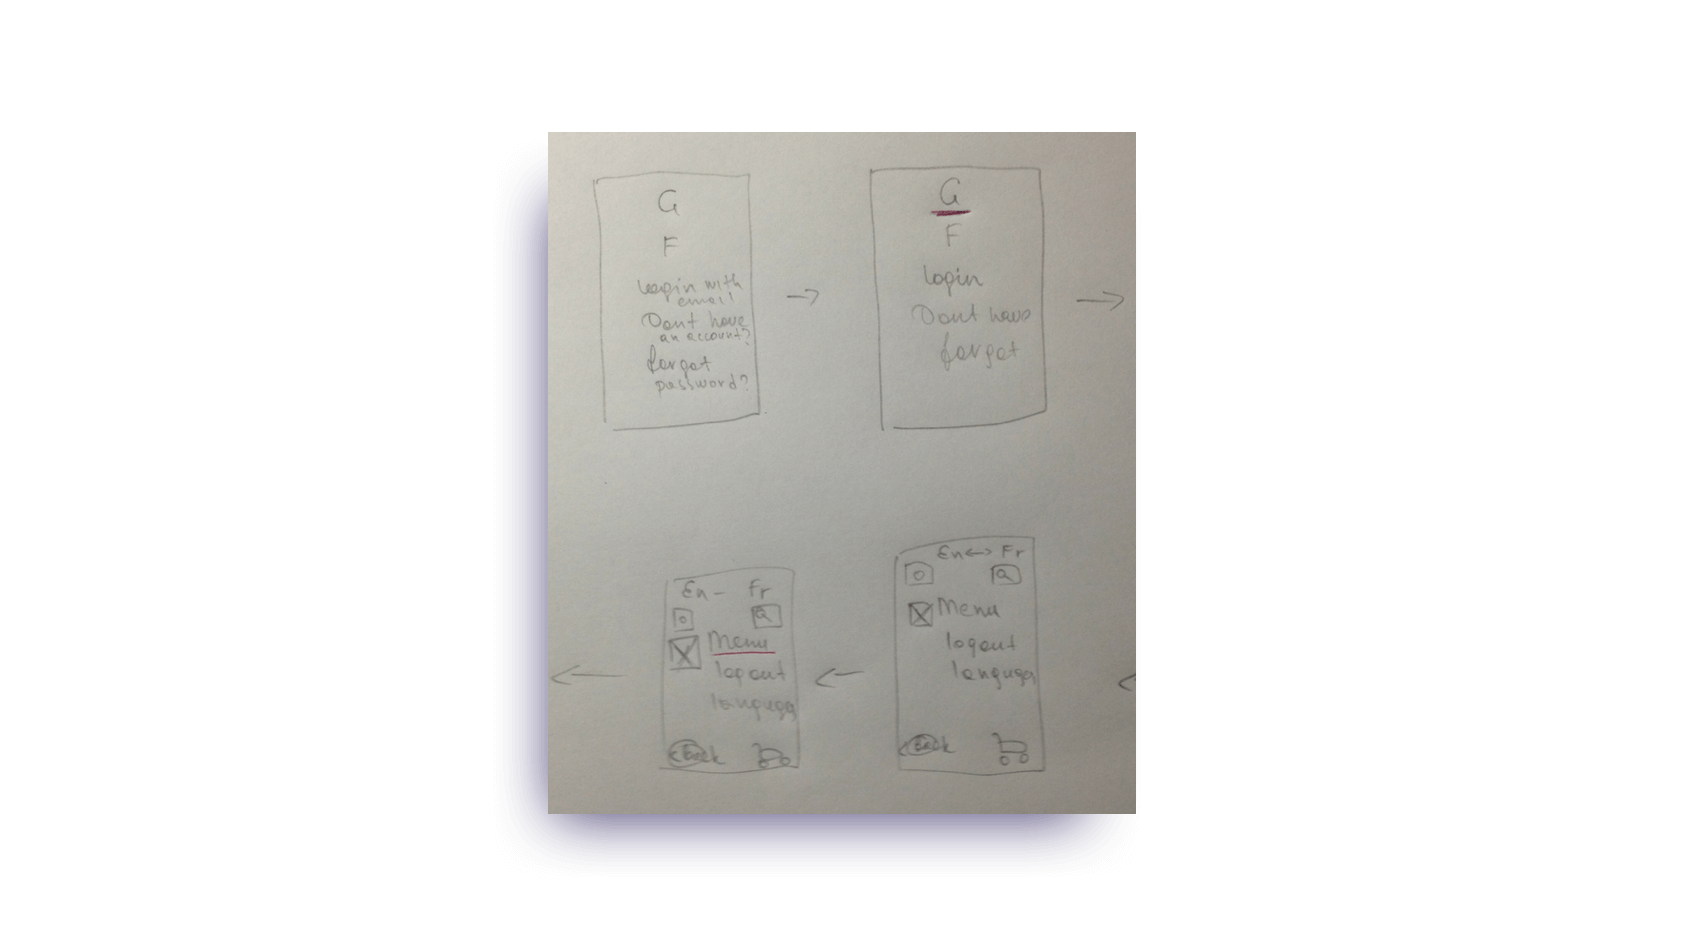 G
F
Login with
email
Dont have
an account?
forgot
password?
G
F
login
Dont have
forgot
En - Fr
Menu
logout
languga
Back
En <-> Fr
Menu
logout
languga
Back